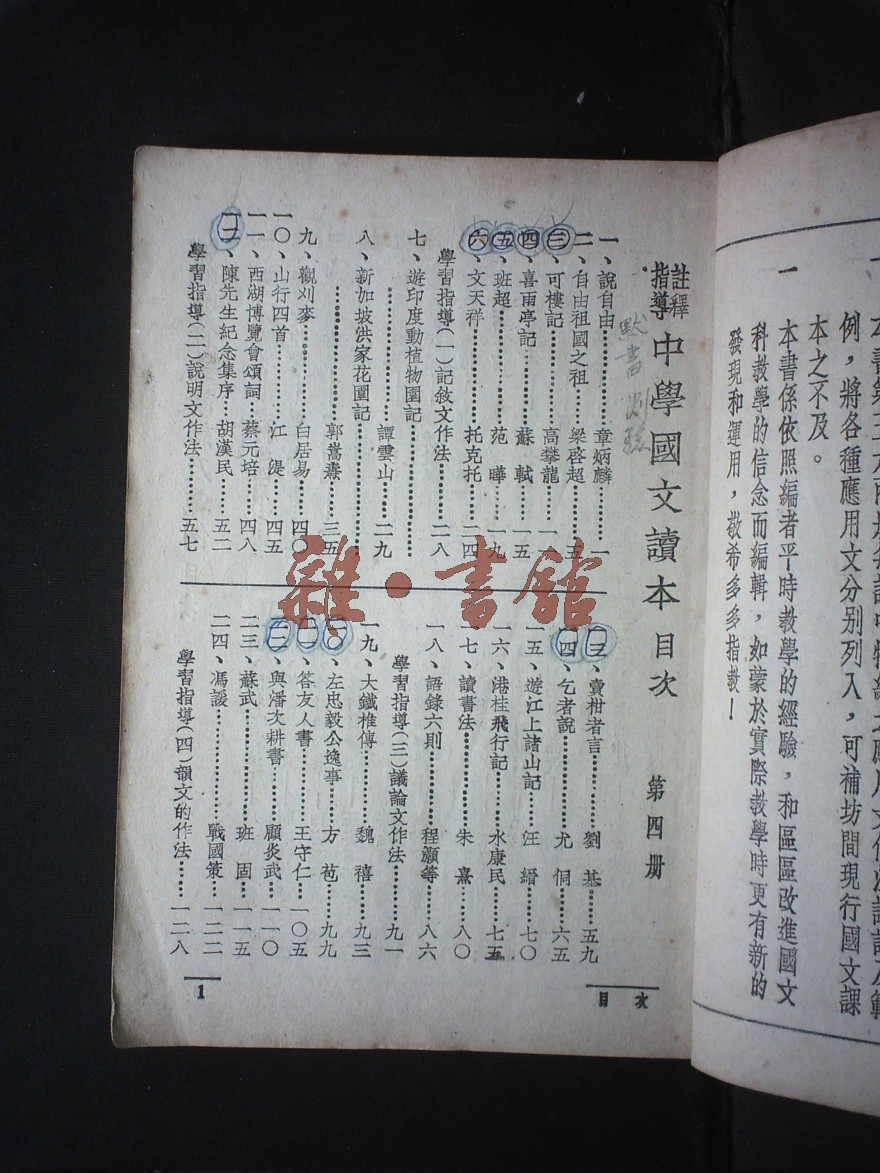 本之不及。
例，將各種應用文分別列入，可補坊間現行國文課
一　本書係依照編者平時教學的經驗，和區區改進國文
科教學的信念而編輯，如蒙於實際教學時更有新的
發現和運用，敬希多多指教！
註釋指導中學國文讀本目次　第四册
默書
一、說自由………章炳麟……一
二、自由祖國之祖……梁啓超……五
三、可樓記………高攀龍……一五
四、喜雨亭記……蘇軾……一五
五、班超………范曄……一九
六、文天祥………托克托……二四
學習指導(一)記敘文作法……二八
七、遊印度動植物園記
………譚雲山……二九
八、新加坡洪家花園記
………郭嵩燾……三五
九、觀刈麥………白居易……四〇
一〇、山行四首……江湜……四五
一一、西湖博覽會頌詞…蔡元培……四八
一二、陳先生紀念集序…胡漢民……五二
學習指導(二)說明文作法……五七
一三、賣柑者言………劉基……五九
一四、乞者說………尤侗……六五
一五、遊江上諸山記……汪縉……七〇
一六、港桂飛行記……水康民……七五
一七、讀書法………朱熹……八〇
一八、語錄六則……程灝等……八六
學習指導(三)議論文作法……九一
一九、大鐵椎傳………魏禧……九三
二〇、左忠毅公逸事……方苞……九九
二一、答友人書………王守仁……一〇五
二二、與潘次耕書……顧炎武……一一〇
二三、蘇武………班固……一一五
二四、馮諼………戰國策……一二二
學習指導(四)韻文的作法……一二八
目次
1
雜·書館